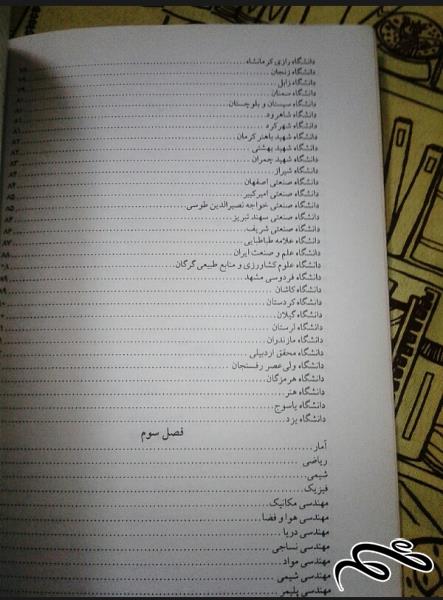 دانشگاه رازی کرمانشاه
دانشگاه زنجان
دانشگاه زابل
دانشگاه سمنان
دانشگاه سیستان و بلوچستان
دانشگاه شاهرود
دانشگاه شهرکرد
دانشگاه شهید باهنر کرمان
دانشگاه شهید بهشتی
دانشگاه شهید چمران
دانشگاه شیراز
دانشگاه صنعتی اصفهان
دانشگاه صنعتی امیرکبیر
دانشگاه صنعتی خواجه نصیرالدین طوسی
دانشگاه صنعتی سهند تبریز
دانشگاه صنعتی شریف
دانشگاه علامه طباطبایی
دانشگاه علم و صنعت ایران
دانشگاه علوم کشاورزی و منابع طبیعی گرگان
دانشگاه فردوسی مشهد
دانشگاه کاشان
دانشگاه کردستان
دانشگاه گیلان
دانشگاه لرستان
دانشگاه مازندران
دانشگاه محقق اردبیلی
دانشگاه ولی عصر رفسنجان
دانشگاه هرمزگان
دانشگاه هنر
دانشگاه یاسوج
دانشگاه یزد
فصل سوم
آمار
ریاضی
شیمی
فیزیک
مهندسی مکانیک
مهندسی هوا و فضا
مهندسی دریا
مهندسی نساجی
مهندسی مواد
مهندسی شیمی
مهندسی پلیمر